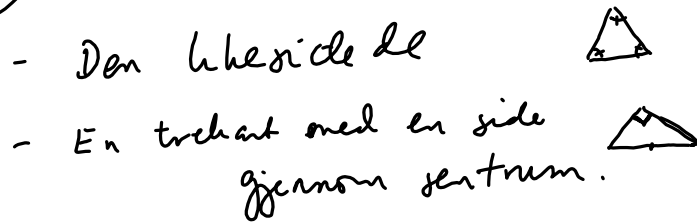 - Den likesidede
- En trekant med en side
gjennom sentrum.